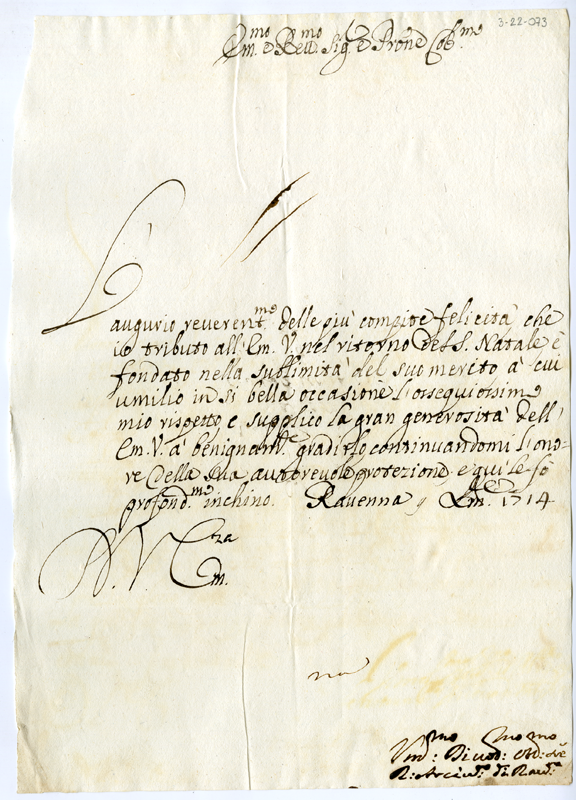 3-22-073
Em.mo e Rev.mo Sig.e Pron.e Col.mo
L'
augurio reverent.mo delle più compite felicità, che
io tributo all'Em. V. nel ritorno del S. Natale è
fondato nella sublimità del suo merito à cui
umilio in si bella occasione l'ossequiosissimo
mio rispetto e supplico la gran generosità dell'
Em. V. à benignam.e gradirlo continuandomi l'ono-
re della sua autorevole protezione e qui le fò
profond.mo inchino. Ravenna 9 Xm.e 1714
A. V. Em.za
Um.mo Divod: Obb: 
R: Arciv: di Rav.a